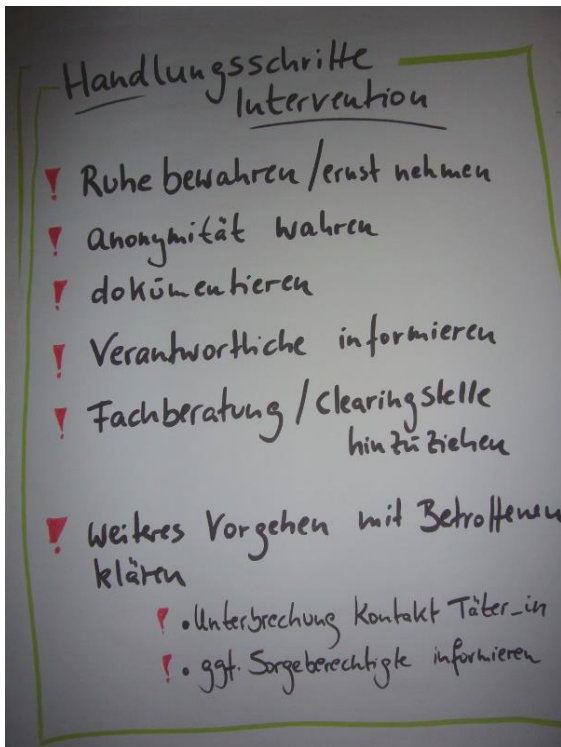 Handlungsschritte
Intervention
! Ruhe bewahren / ernst nehmen
! Anonymität wahren
! dokümentieren
! Verantwortliche informieren
! Fachberatung / Clearingstelle
hinzuziehen
! Weiteres Vorgehen mit Betroffenen
klären
! • Unterbrechung Kontakt Täter_in
! • ggf. Sorgeberechtigte informieren